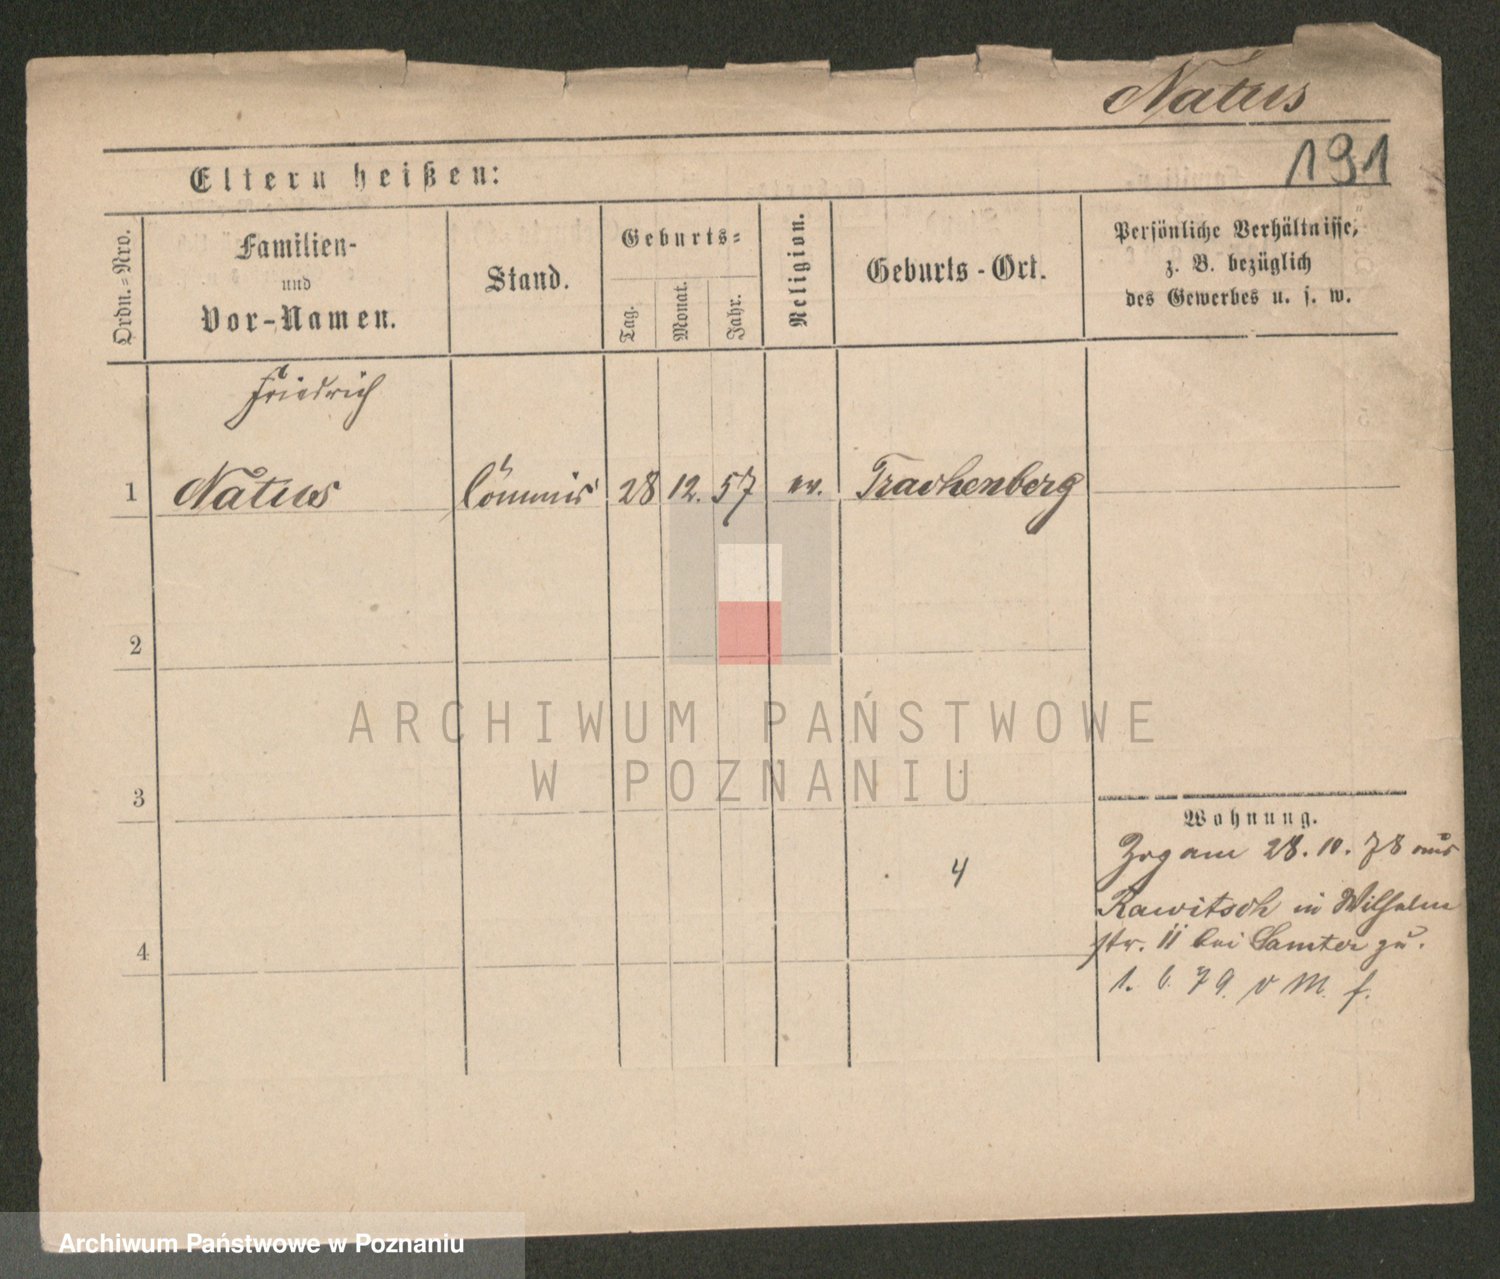 Natus
191
Eltern heißen:
Ordn.-Nro.
Familien-
und
Vor-Namen.
Stand.
Geburts-
Tag.
Monat.
Jahr.
Religion.
Geburts-Ort.
Persönliche Verhältnisse,
z. B. bezüglich
des Gewerbes u. s. w.
Friedrich
1 Natus Commis 28 12. 57 ev. Trachenberg
2
ARCHIWUM PAŃSTWOWE
W POZNANIU
3
Wohnung.
Zog am 28. 10. 78 aus
4
Rawitsch in Wilhelm
str. 11 bei Samter zu.
4
1. 6. 79. v M. f.
Archiwum Państwowe w Poznaniu